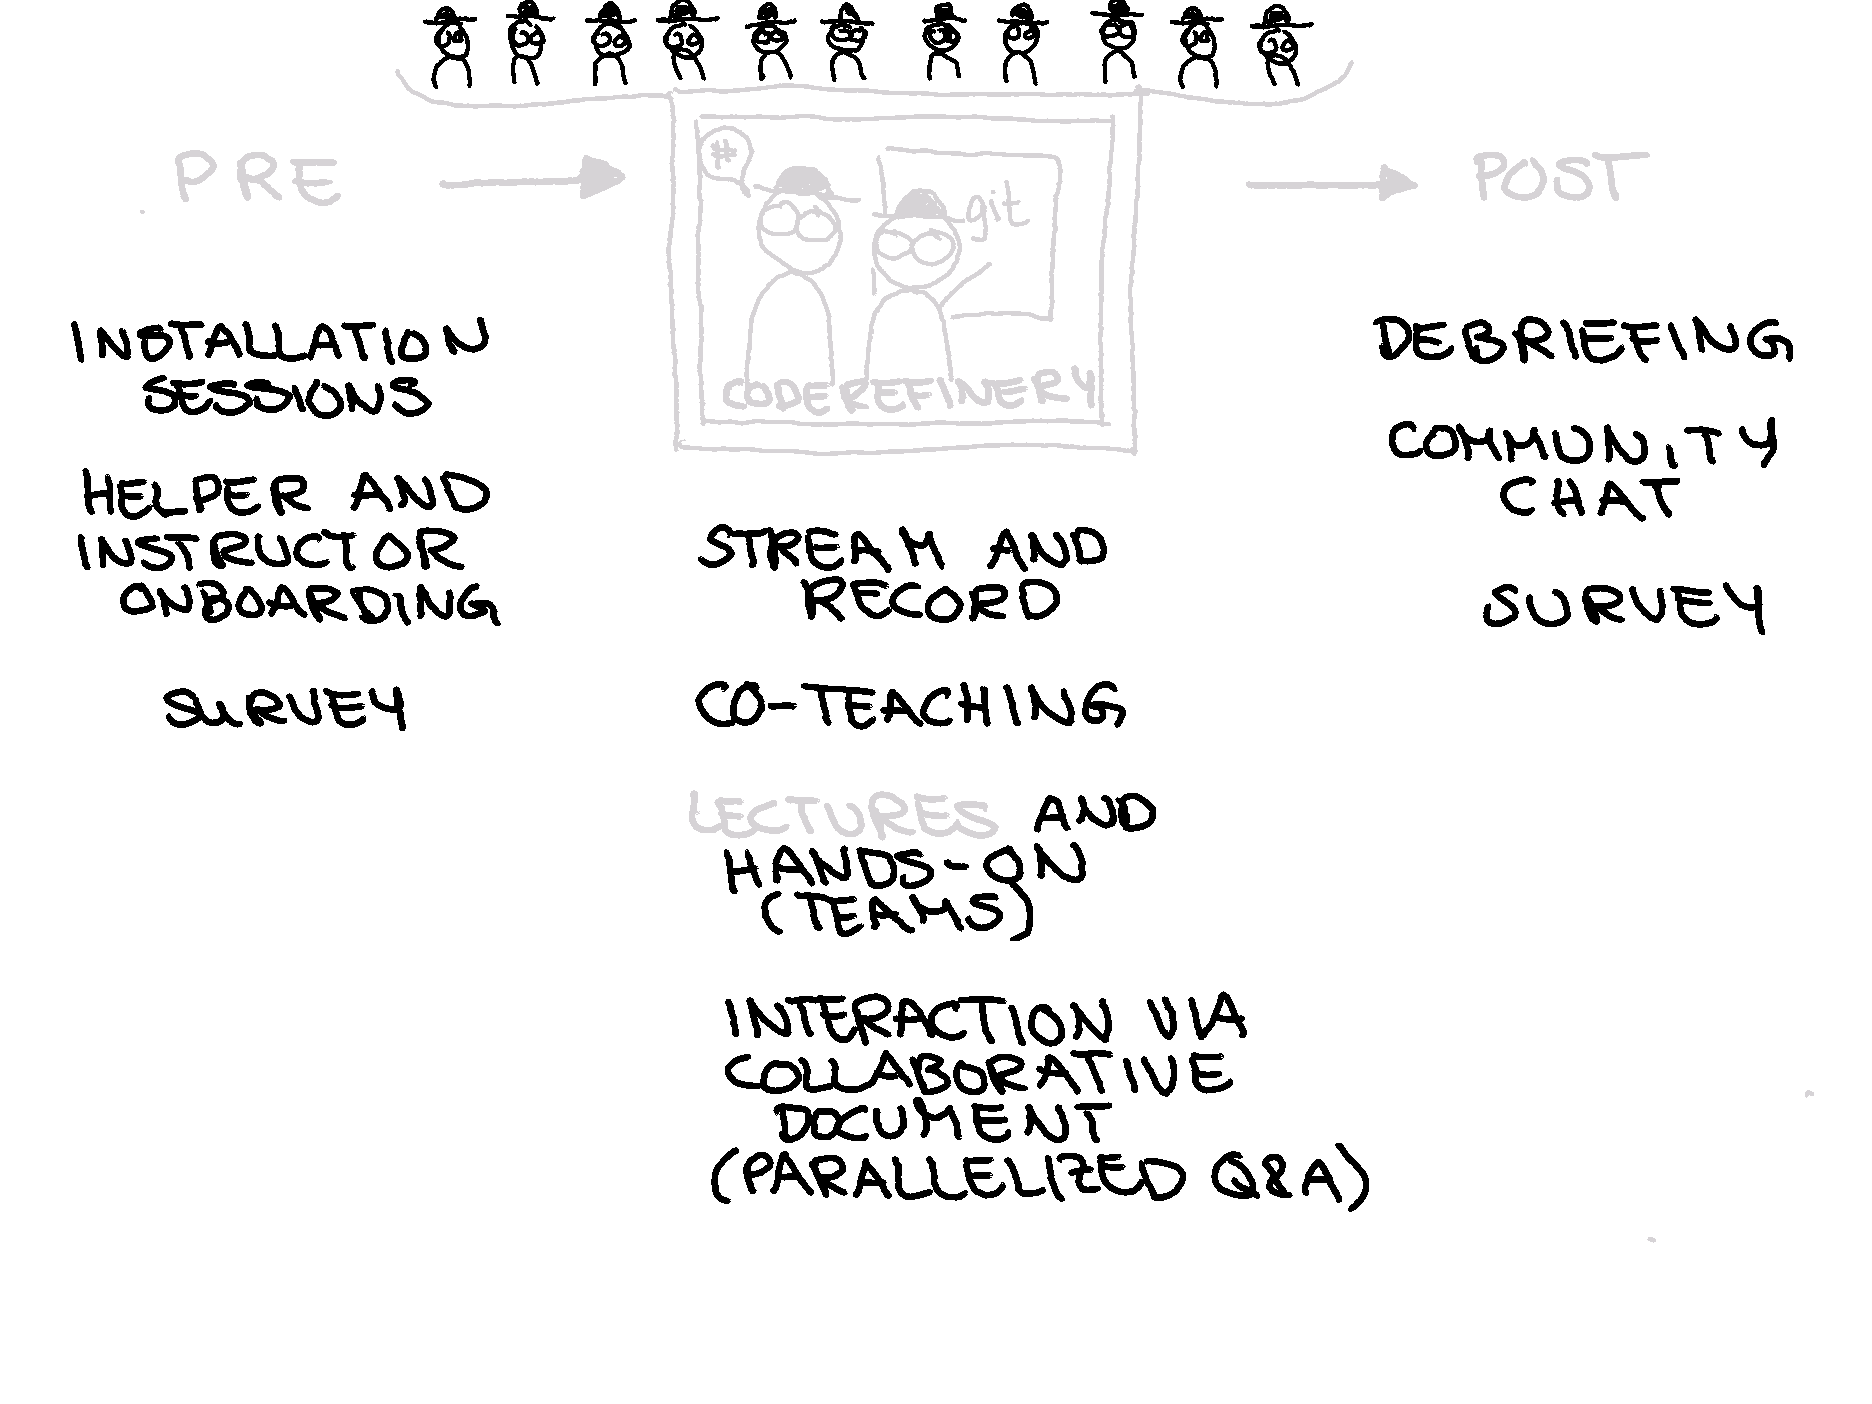 PRE
#
git
CODEREFINERY
POST
INSTALLATION
SESSIONS
HELPER AND
INSTRUCTOR
ONBOARDING
SURVEY
STREAM AND
RECORD
CO-TEACHING
LECTURES AND
HANDS-ON
(TEAMS)
INTERACTION VIA
COLLABORATIVE
DOCUMENT
(PARALLELIZED Q&A)
DEBRIEFING
COMMUNITY
CHAT
SURVEY